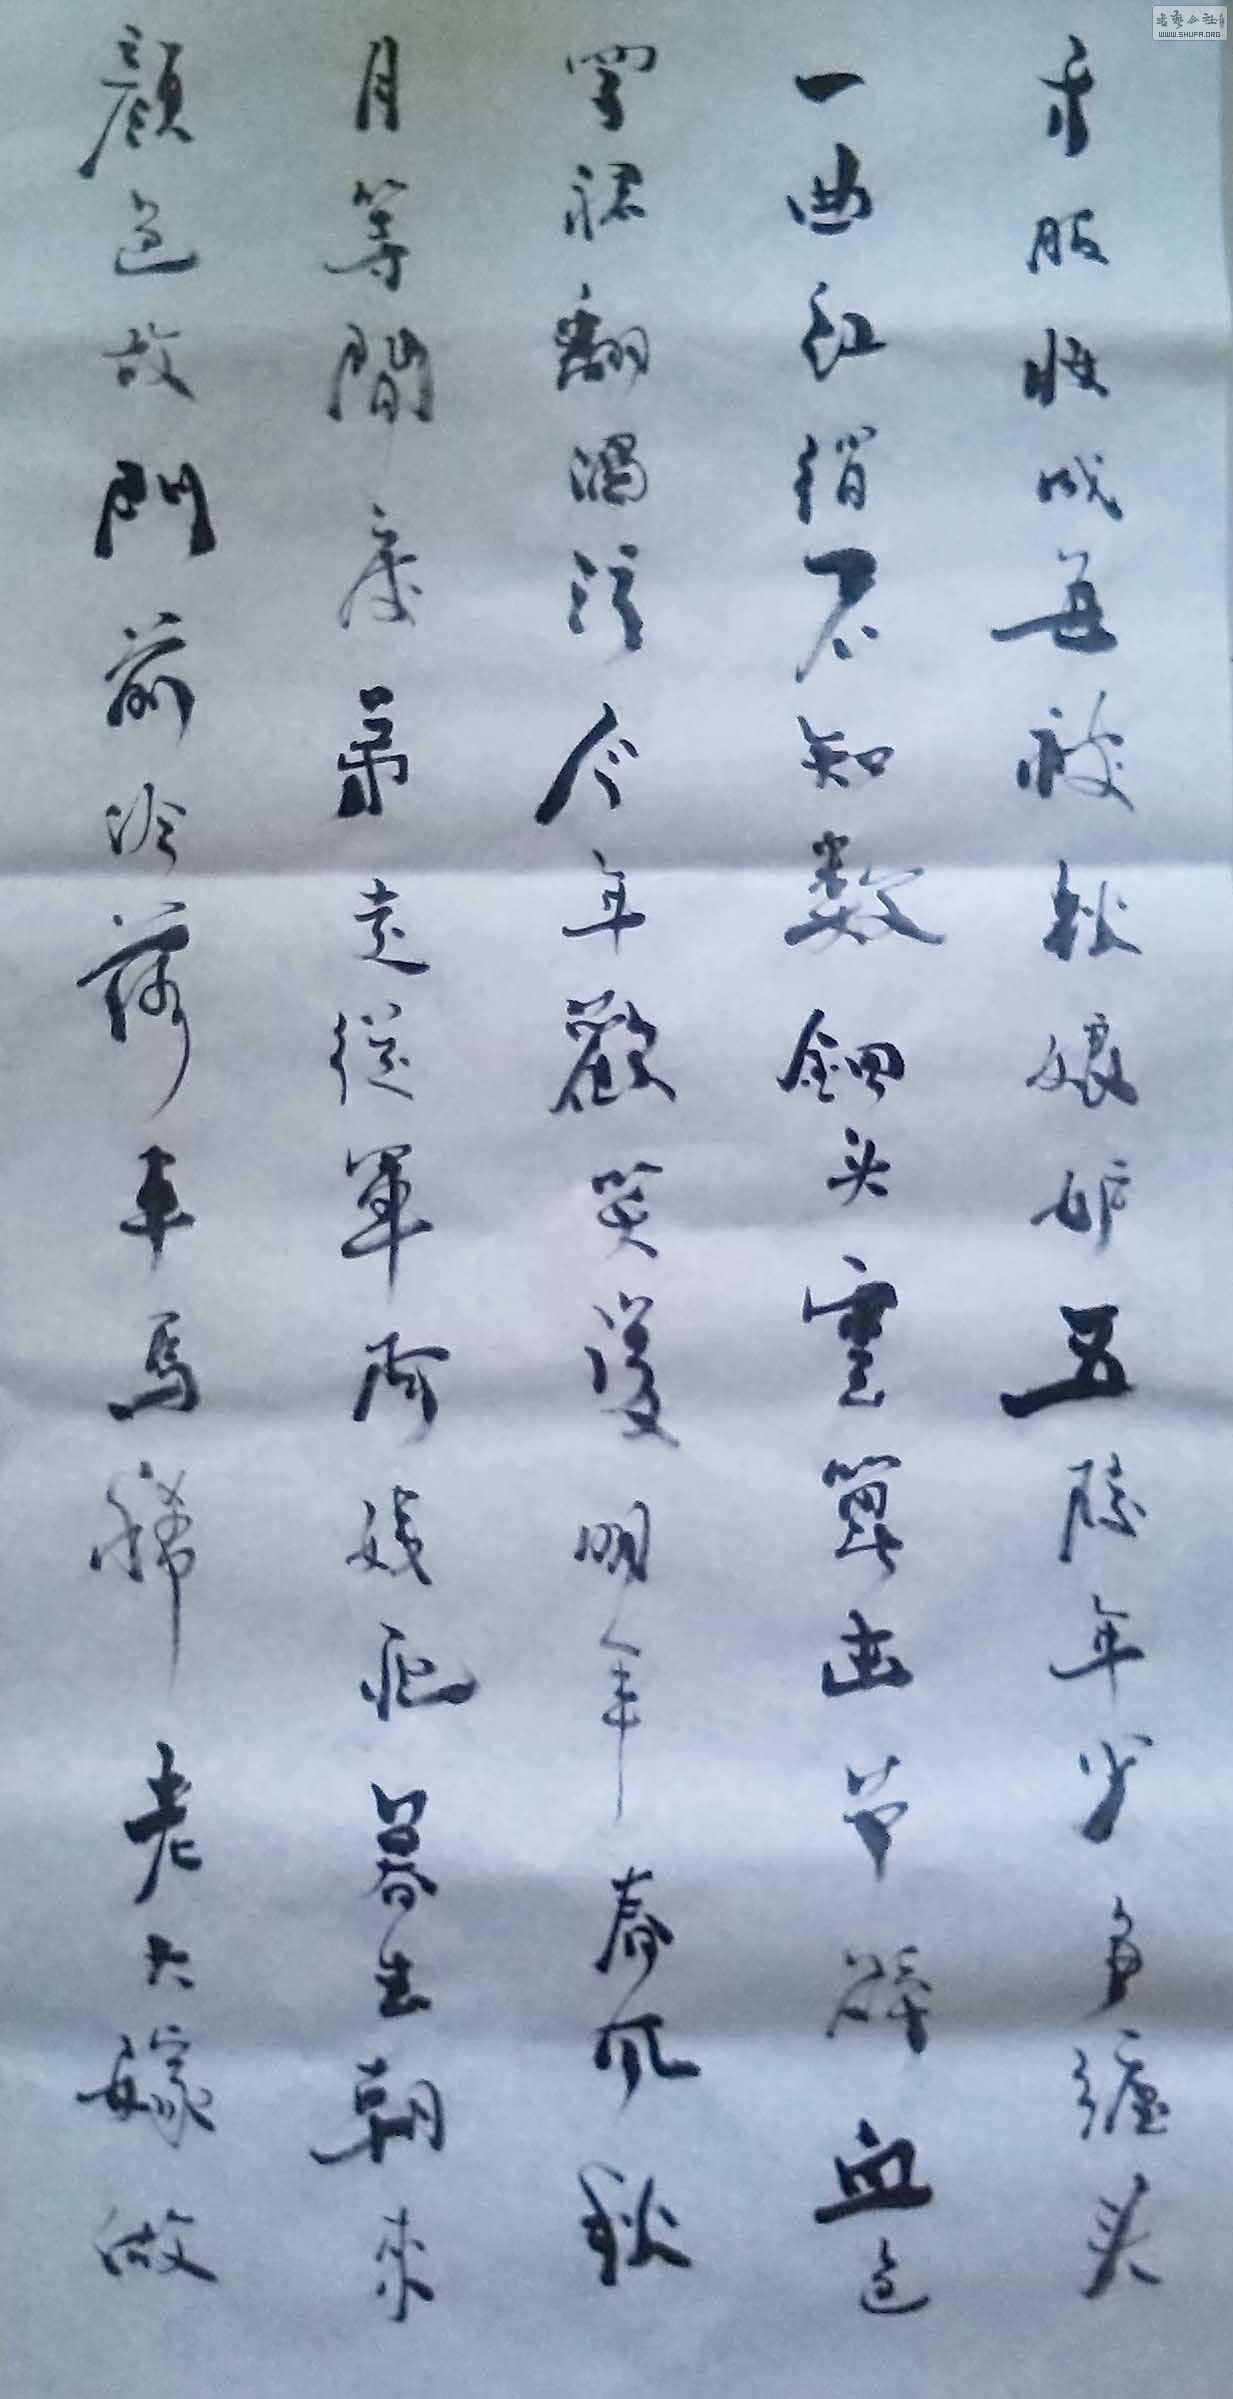 才服妝成每被秋娘妒五陵年少争纏头
一曲紅綃不知数鈿头雲篦击节碎血色
罗裙翻酒污今年歡笑復明年春风秋
月等間度弟走從軍阿姨死暮去朝來
顏色故門前冷落車馬稀老大嫁做
書藝公社
WWW.SHUFA.ORG